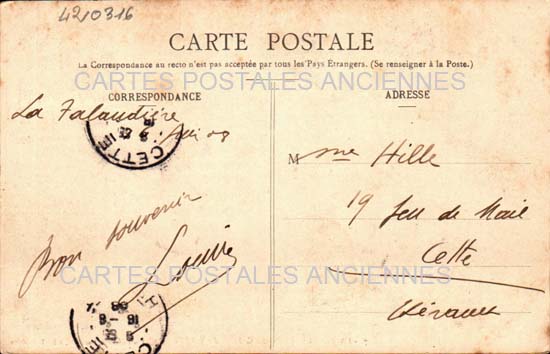 4210316
CARTE POSTALE
La Correspondance au recto n'est pas acceptée par tous les Pays Étrangers. (Se renseigner à la Poste.)
CARTES POSTALES ANCIENNES
CORRESPONDANCE
La Talaudière
Bon souvenir
Louis
CETTE
ADRESSE
Mme Hille
19 Jeu de Mail
Cette
Hérault
CARTES POSTALES ANCIENNES